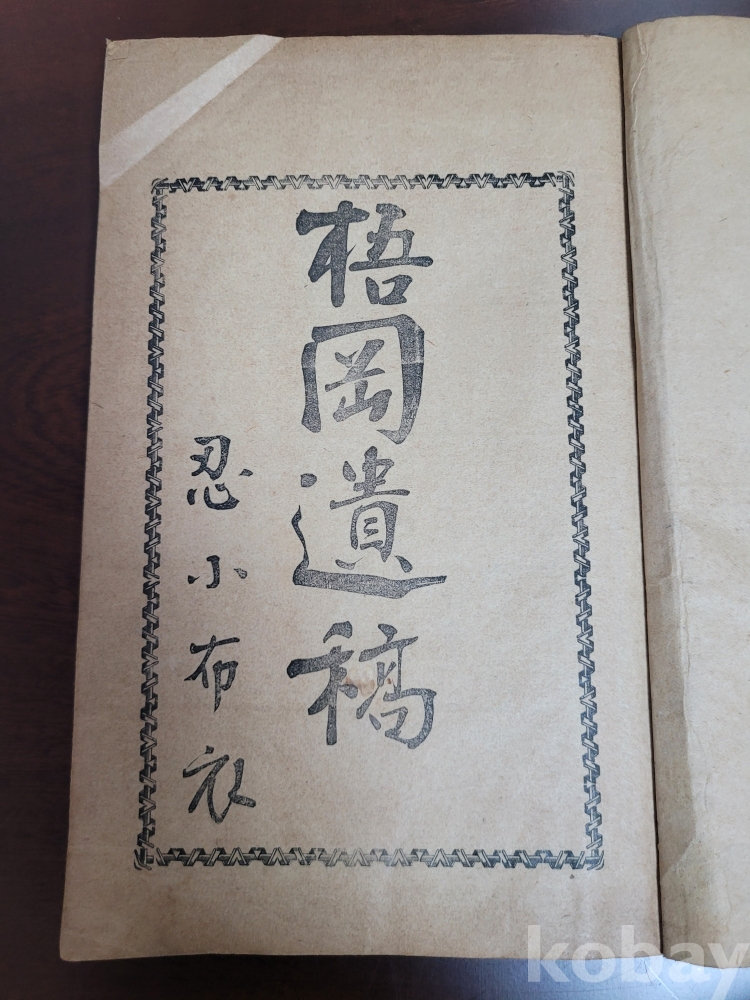 梧岡遺稿
忍小布衣
kobay